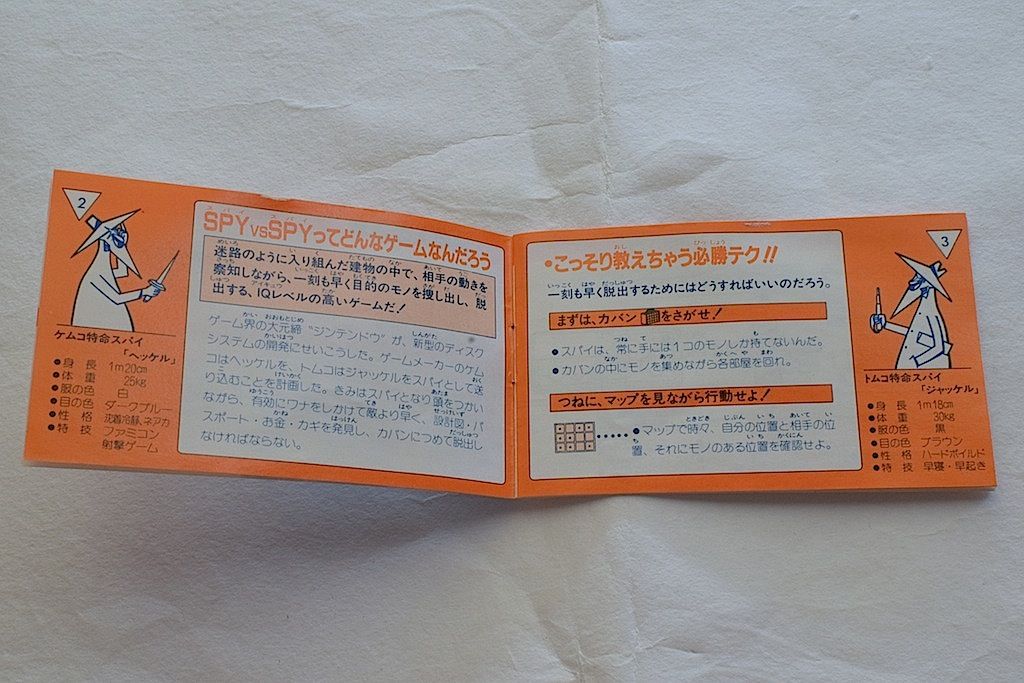 2
ケムコ特命スパイ
「ヘッケル」
●身 長 1m20cm
●体 重 25kg
●服の色 白
●目の色 ダークブルー
●性 格 沈着冷静、ネアカ
●特 技 ファミコン
射撃ゲーム
SPY vs SPYってどんなゲームなんだろう
迷路のように入り組んだ建物の中で、相手の動きを
察知しながら、一刻も早く目的のモノを捜し出し、脱
出する、IQレベルの高いゲームだ!
ゲーム界の大元締“ジンテンドウ”が、新型のディスク
システムの開発にせいこうした。ゲームメーカーのケム
コはヘッケルを、トムコはジャッケルをスパイとして送
り込むことを計画した。きみはスパイとなり頭をつかい
ながら、有効にワナをしかけて敵より早く、設計図・パ
スポート・お金・カギを発見し、カバンにつめて脱出し
なければならない。
3
•こっそり教えちゃう必勝テク!!
一刻も早く脱出するためにはどうすればいいのだろう。
まずは、カバンをさがせ!
●スパイは、常に手には1コのモノしか持てないんだ。
●カバンの中にモノを集めながら各部屋を回れ。
つねに、マップを見ながら行動せよ!
●マップで時々、自分の位置と相手の位
置、それにモノのある位置を確認せよ。
トムコ特命スパイ
「ジャッケル」
●身 長 1m18cm
●体 重 30kg
●服の色 黒
●目の色 ブラウン
●性 格 ハードボイルド
●特 技 早寝・早起き